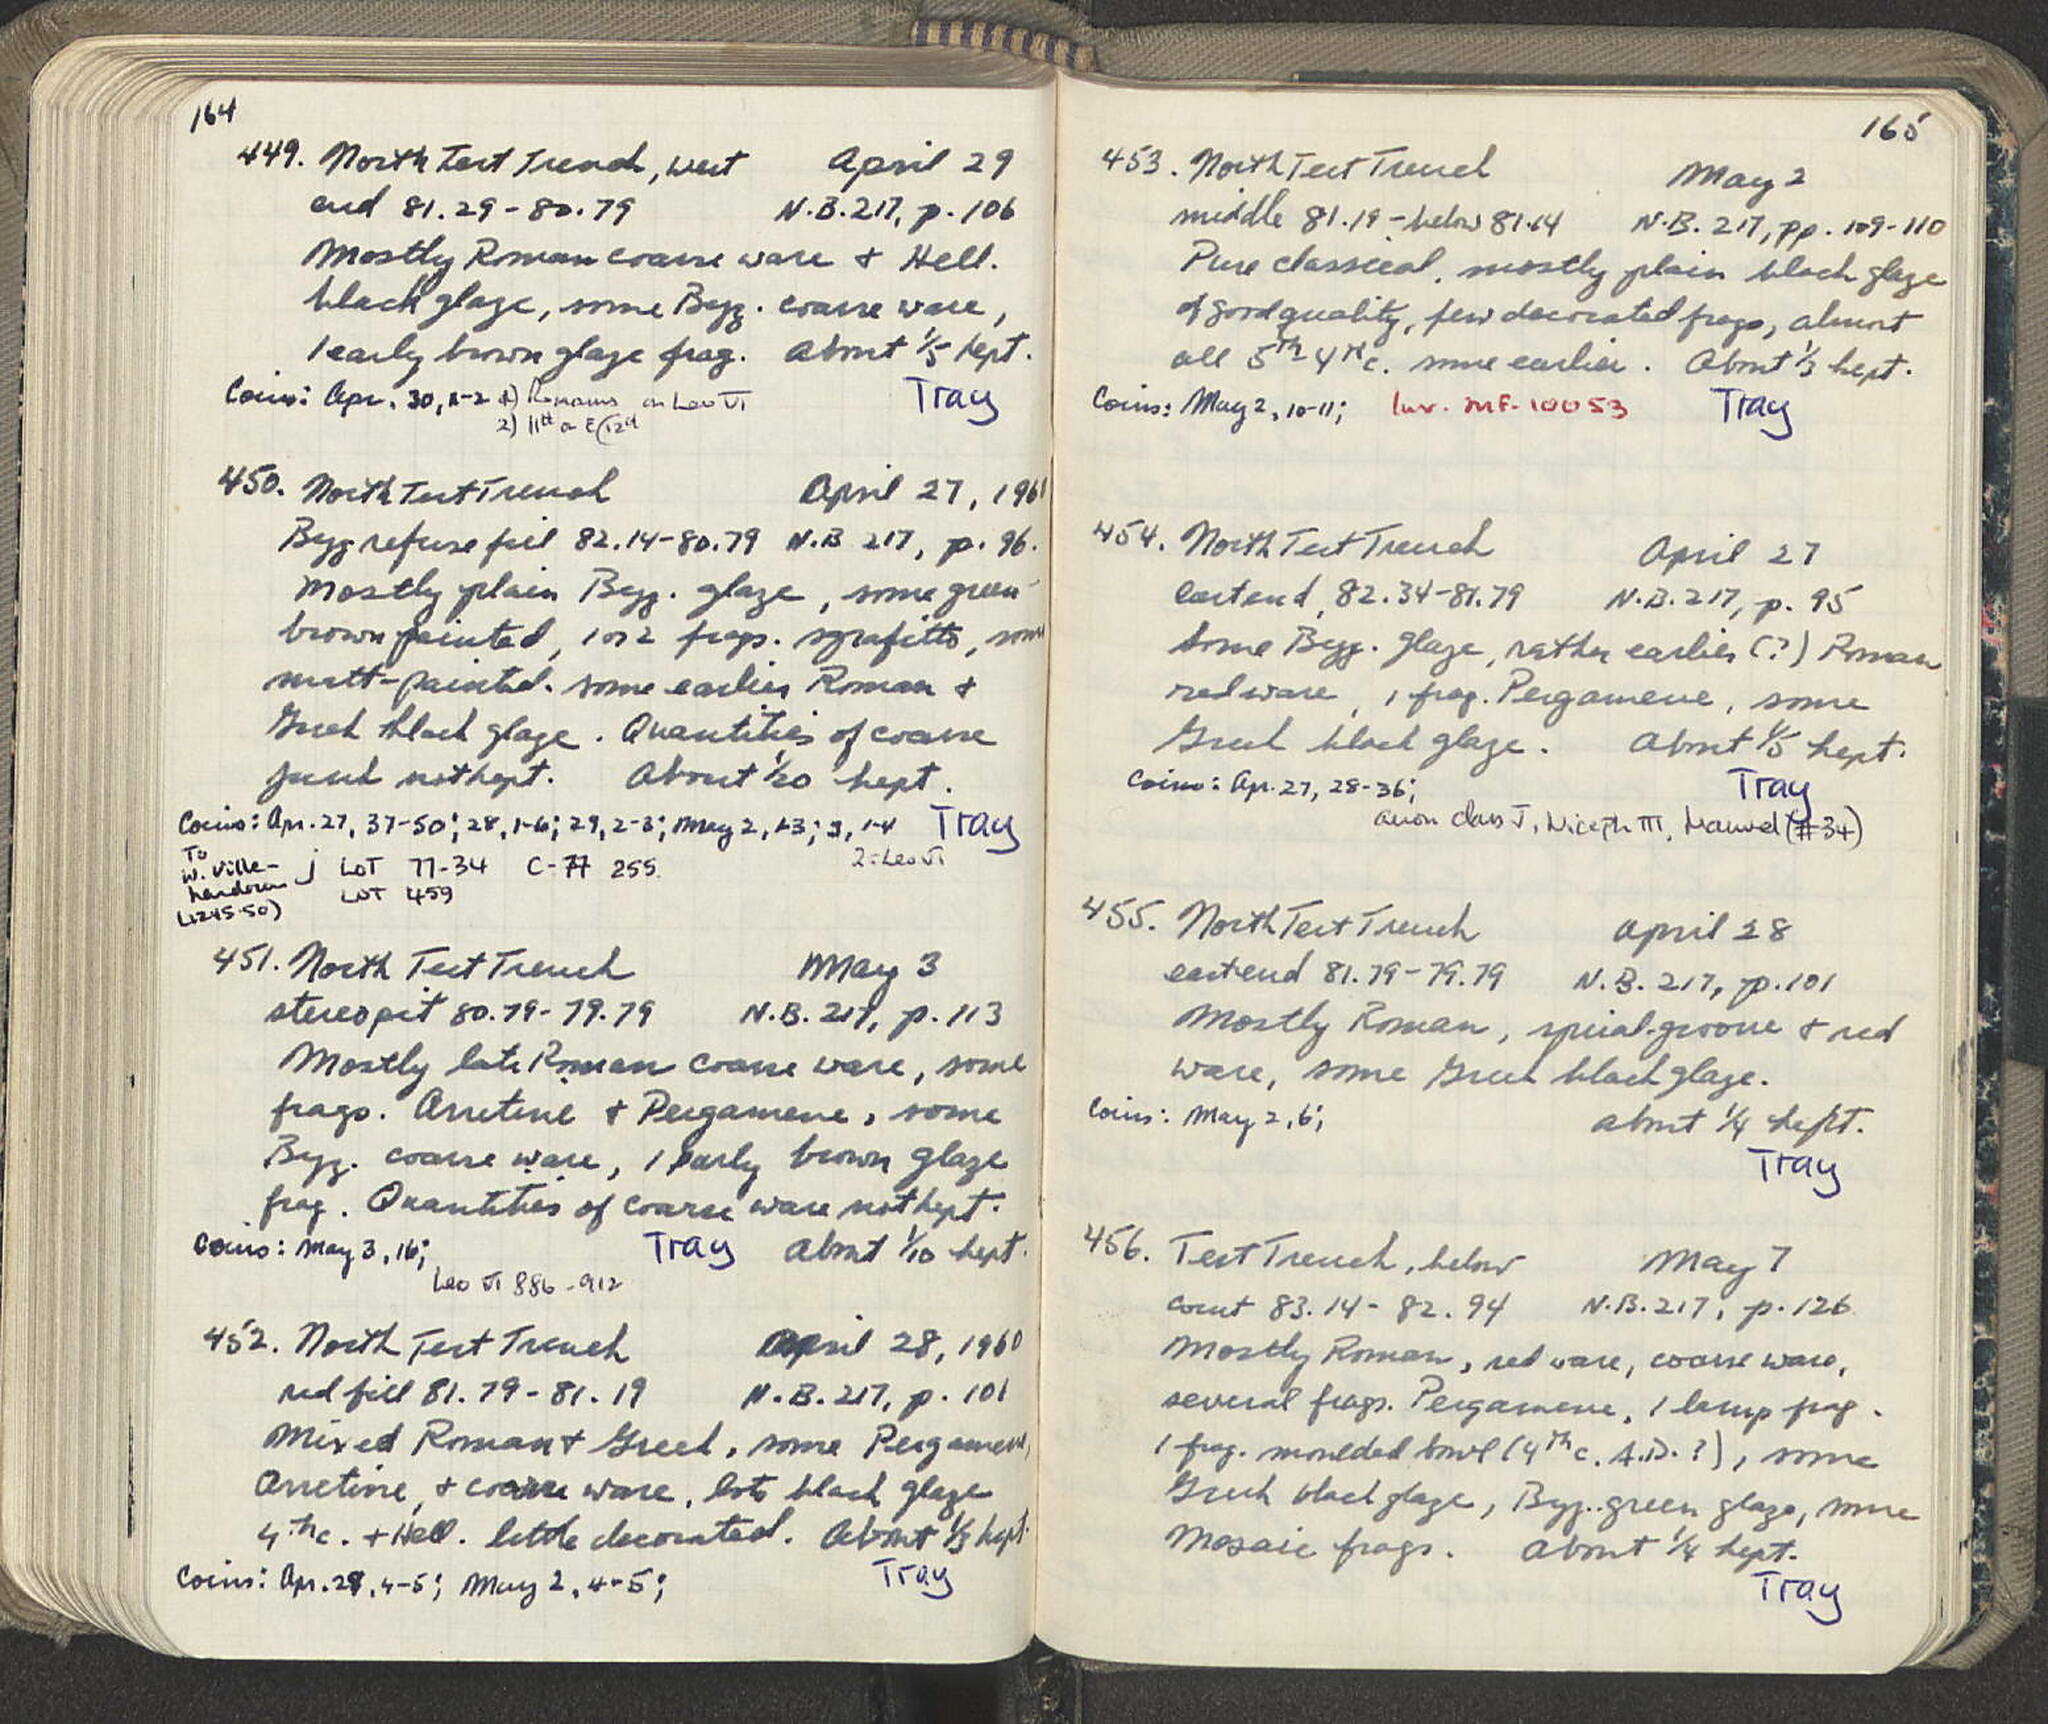 164
449. North Test Trench, west April 29
end 81.29-80.79 N.B. 217, p. 106
Mostly Roman coarse ware + Hell.
black glaze, some Byz. coarse ware,
1 early brown glaze frag. About 1/5 kept.
Coins: Apr. 30, 1-2 1) Romanus or Leo VI Tray
2) 11th or E/12th
450. North Test Trench April 27, 1960
Byz refuse fill 82.14-80.79 N.B 217, p. 96.
Mostly plain Byz. glaze, some green-
brown painted, 1 or 2 frags. sgrafitto, some
matt-painted. some earlier Roman +
Greek black glaze. Quantities of coarse
junk not kept. About 1/20 kept.
Coins: Apr. 27, 37-50; 28, 1-6; 29, 2-3; May 2, 1-3; 3, 1-4 Tray
2 = Leo VI
To W. Ville-
hardouin
(1245-50) ; LOT 77-34 C-77 255
LOT 459
451. North Test Trench May 3
stereo pit 80.79-79.79 N.B. 217, p. 113
Mostly late Roman coarse ware, some
frags. Arretine + Pergamene, some
Byz. coarse ware, 1 early brown glaze
frag. Quantities of coarse ware not kept.
Coins: May 3, 16; Tray About 1/10 kept.
Leo VI 886-912
452. North Test Trench April 28, 1960
red fill 81.79-81.19 N.B. 217, p. 101
Mixed Roman + Greek, some Pergamene,
Arretine, + coarse ware, lots black glaze
4th c. + Hell. little decorated. About 1/3 kept.
Coins: Apr. 28, 4-5; May 2, 4-5; Tray
165
453. North Test Trench May 2
middle 81.19-below 81.14 N.B. 217, pp. 109-110
Pure classical, mostly plain black glaze
of good quality, few decorated frags, almost
all 5th 4th c. some earlier. About 1/3 kept.
Coins: May 2, 10-11; Inv. MF-10053 Tray
454. North Test Trench April 27
east end, 82.34-81.79 N.B. 217, p. 95
Some Byz. glaze, rather earlier (?) Roman
red ware, 1 frag. Pergamene, some
Greek black glaze. About 1/5 kept.
Coins: Apr. 27, 28-36; Tray
anon class I, Niceph III, Manuel (#34)
455. North Test Trench April 28
east end 81.79-79.79 N.B. 217, p. 101
Mostly Roman, spiral-groove + red
ware, some Greek black glaze.
Coins: May 2, 6; about 1/4 kept.
Tray
456. Test Trench, below May 7
court 83.14-82.94 N.B. 217, p. 126
Mostly Roman, red ware, coarse ware,
several frags. Pergamene, 1 lamp frag.
1 frag. moulded bowl (4th c. A.D.?), some
Greek black glaze, Byz. green glaze, some
Mosaic frags. About 1/4 kept.
Tray